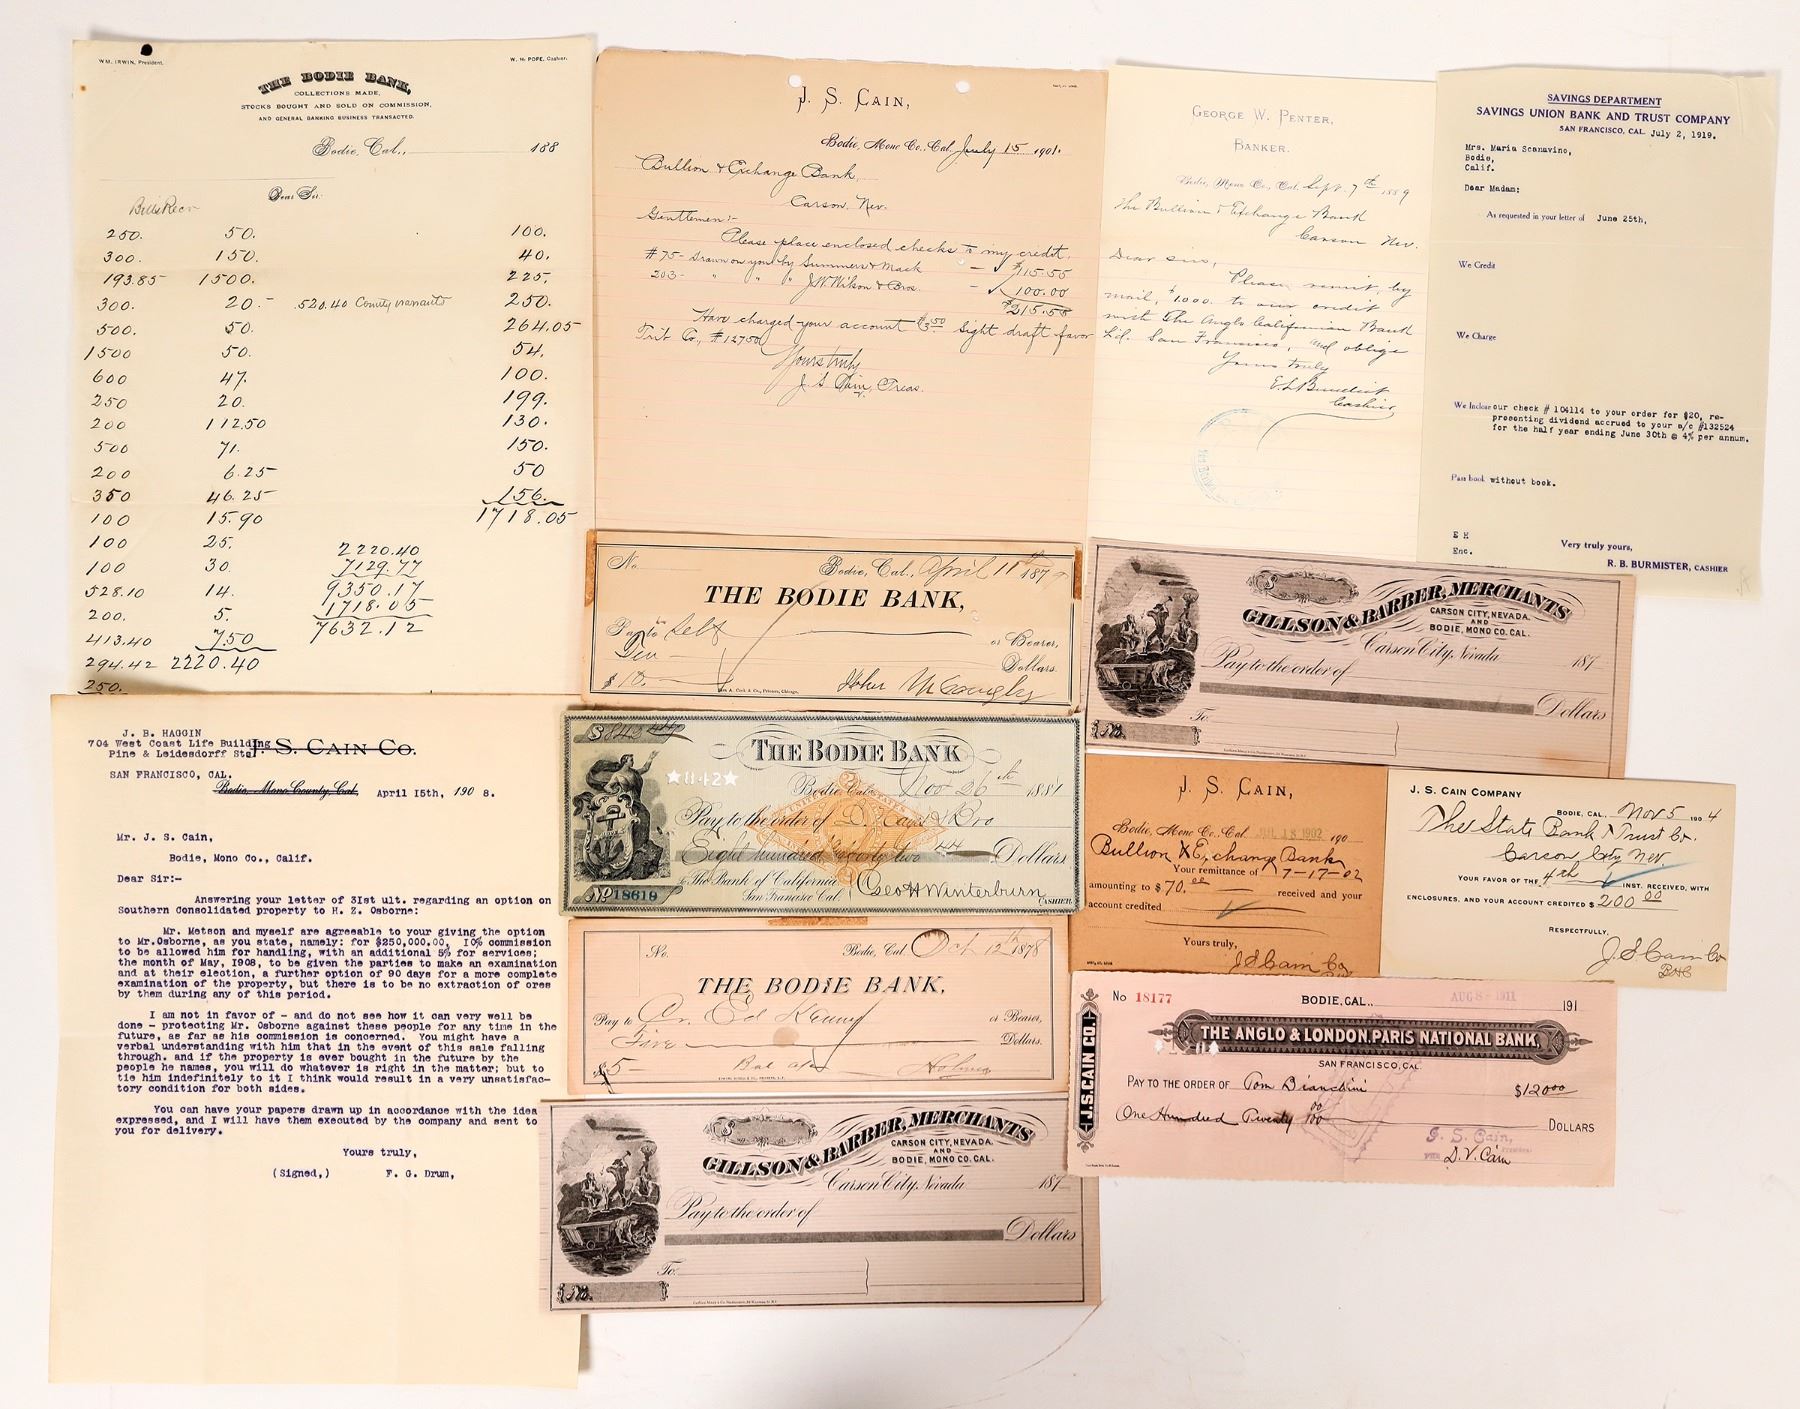 WM. IRWIN, President.
W. H. POPE, Cashier.
THE BODIE BANK,
COLLECTIONS MADE,
STOCKS BOUGHT AND SOLD ON COMMISSION,
AND GENERAL BANKING BUSINESS TRANSACTED.
Bodie, Cal., 188
Dear Sir:
250. 50. 100.
300. 150. 40.
193.85 1500. 225.
300. 20.- 520.40 County warrants 250.
500. 50. 264.05
1500 50. 54.
600 47. 100.
250 20. 199.
200 112.50 130.
500 71. 150.
200 6.25 50
350 46.25 156.
100 15.90 1718.05
100 25. 2220.40
100 30. 7129.77
528.10 14. 9350.17
200. 5. 1718.05
413.40 7.50 7632.12
294.42 2220.40
250.
J. S. CAIN,
Bodie, Mono Co., Cal. July 15 1901.
Bullion & Exchange Bank,
Carson. Nev.
Gentlemen:-
Please place enclosed checks to my credit.
# 75- Drawn on you by Summers & Mack - $115.55
203- " " " J. W. Wilson & Bros. - 100.00
$215.55
Have charged your account $3.50 Sight draft favor
Trit Co., #12750
Yours truly
J. S. Cain, Treas.
GEORGE W. PENTER,
BANKER.
Bodie, Mono Co., Cal. Sept. 7th 1889
The Bullion & Exchange Bank
Carson Nev.
Dear sirs,
Please remit, by
mail, $1,000. to our credit
with The Anglo Californian Bank
Ld. San Francisco, and oblige
Yours truly
E. L. Benedict
Cashier
SAVINGS DEPARTMENT
SAVINGS UNION BANK AND TRUST COMPANY
SAN FRANCISCO, CAL. July 2, 1919.
Mrs. Maria Scanavino,
Bodie,
Calif.
Dear Madam:
As requested in your letter of June 25th,
We Credit
We Charge
We Inclose our check # 104114 to your order for $20, re-
presenting dividend accrued to your a/c #132524
for the half year ending June 30th @ 4% per annum.
Pass book without book.
E H
Enc.
Very truly yours,
R. B. BURMISTER, CASHIER
No.
Bodie, Cal., April 11th 187
THE BODIE BANK,
Pay to Self or Bearer,
Ten Dollars.
$10.
John McConugley
GILLSON & BARBER, MERCHANTS
CARSON CITY, NEVADA.
AND
BODIE, MONO CO. CAL.
Carson City, Nevada 187
Pay to the order of
Dollars
To:
$
No.
J. B. HAGGIN
704 West Coast Life Building
Pine & Leidesdorff Sts
J. S. CAIN CO.
SAN FRANCISCO, CAL.
Bodie, Mono County, Cal. April 15th, 190 8.
Mr. J. S. Cain,
Bodie, Mono Co., Calif.
Dear Sir:-
Answering your letter of 31st ult. regarding an option on
Southern Consolidated property to H. Z. Osborne:
Mr. Metson and myself are agreeable to your giving the option
to Mr.Osborne, as you state, namely: for $250,000.00, 10% commission
to be allowed him for handling, with an additional 5% for services;
the month of May, 1908, to be given the parties to make an examination
and at their election, a further option of 90 days for a more complete
examination of the property, but there is to be no extraction of ores
by them during any of this period.
I am not in favor of - and do not see how it can very well be
done - protecting Mr. Osborne against these people for any time in the
future, as far as his commission is concerned. You might have a
verbal understanding with him that in the event of this sale falling
through. and if the property is ever bought in the future by the
people he names, you will do whatever is right in the matter; but to
tie him indefinitely to it I think would result in a very unsatisfac-
tory condition for both sides.
You can have your papers drawn up in accordance with the idea
expressed, and I will have them executed by the company and sent to
you for delivery.
Yours truly,
(Signed,) F. G. Drum,
$842.44
THE BODIE BANK
★842★
Bodie Cal. Nov 26th 1881
Pay to the order of D. Hays & Bro
Eight hundred forty two 44 Dollars
To The Bank of California
San Francisco Cal.
Geo H Winterburn
CASHIER
No 18619
J. S. CAIN,
Bodie, Mono Co., Cal. JUL 18 1902 190
Bullion & Exchange Bank
Your remittance of 7-17-02
amounting to $70.00 received and your
account credited
Yours truly,
J S Cain Co
J. S. CAIN COMPANY
BODIE, CAL., Nov 5 190 4
The State Bank & Trust Co.
Carson City Nev.
YOUR FAVOR OF THE 4th INST. RECEIVED, WITH
ENCLOSURES, AND YOUR ACCOUNT CREDITED $ 200 00
RESPECTFULLY,
J. S. Cain Co
No.
Bodie, Cal. Oct 12th 1878
THE BODIE BANK,
Pay to Ed or Bearer,
Five Dollars.
$5-
J.S.CAIN CO.
No 18177
BODIE, CAL., AUG 8 - 1911 191
THE ANGLO & LONDON, PARIS NATIONAL BANK,
SAN FRANCISCO, CAL.
PAY TO THE ORDER OF Tom Bianchini $120 00
One Hundred Twenty 00/100 DOLLARS
J. S. Cain,
PER President
D. V. Cain
GILLSON & BARBER, MERCHANTS
CARSON CITY, NEVADA.
AND
BODIE, MONO CO. CAL.
Carson City, Nevada 187
Pay to the order of
Dollars
To:
$
No.